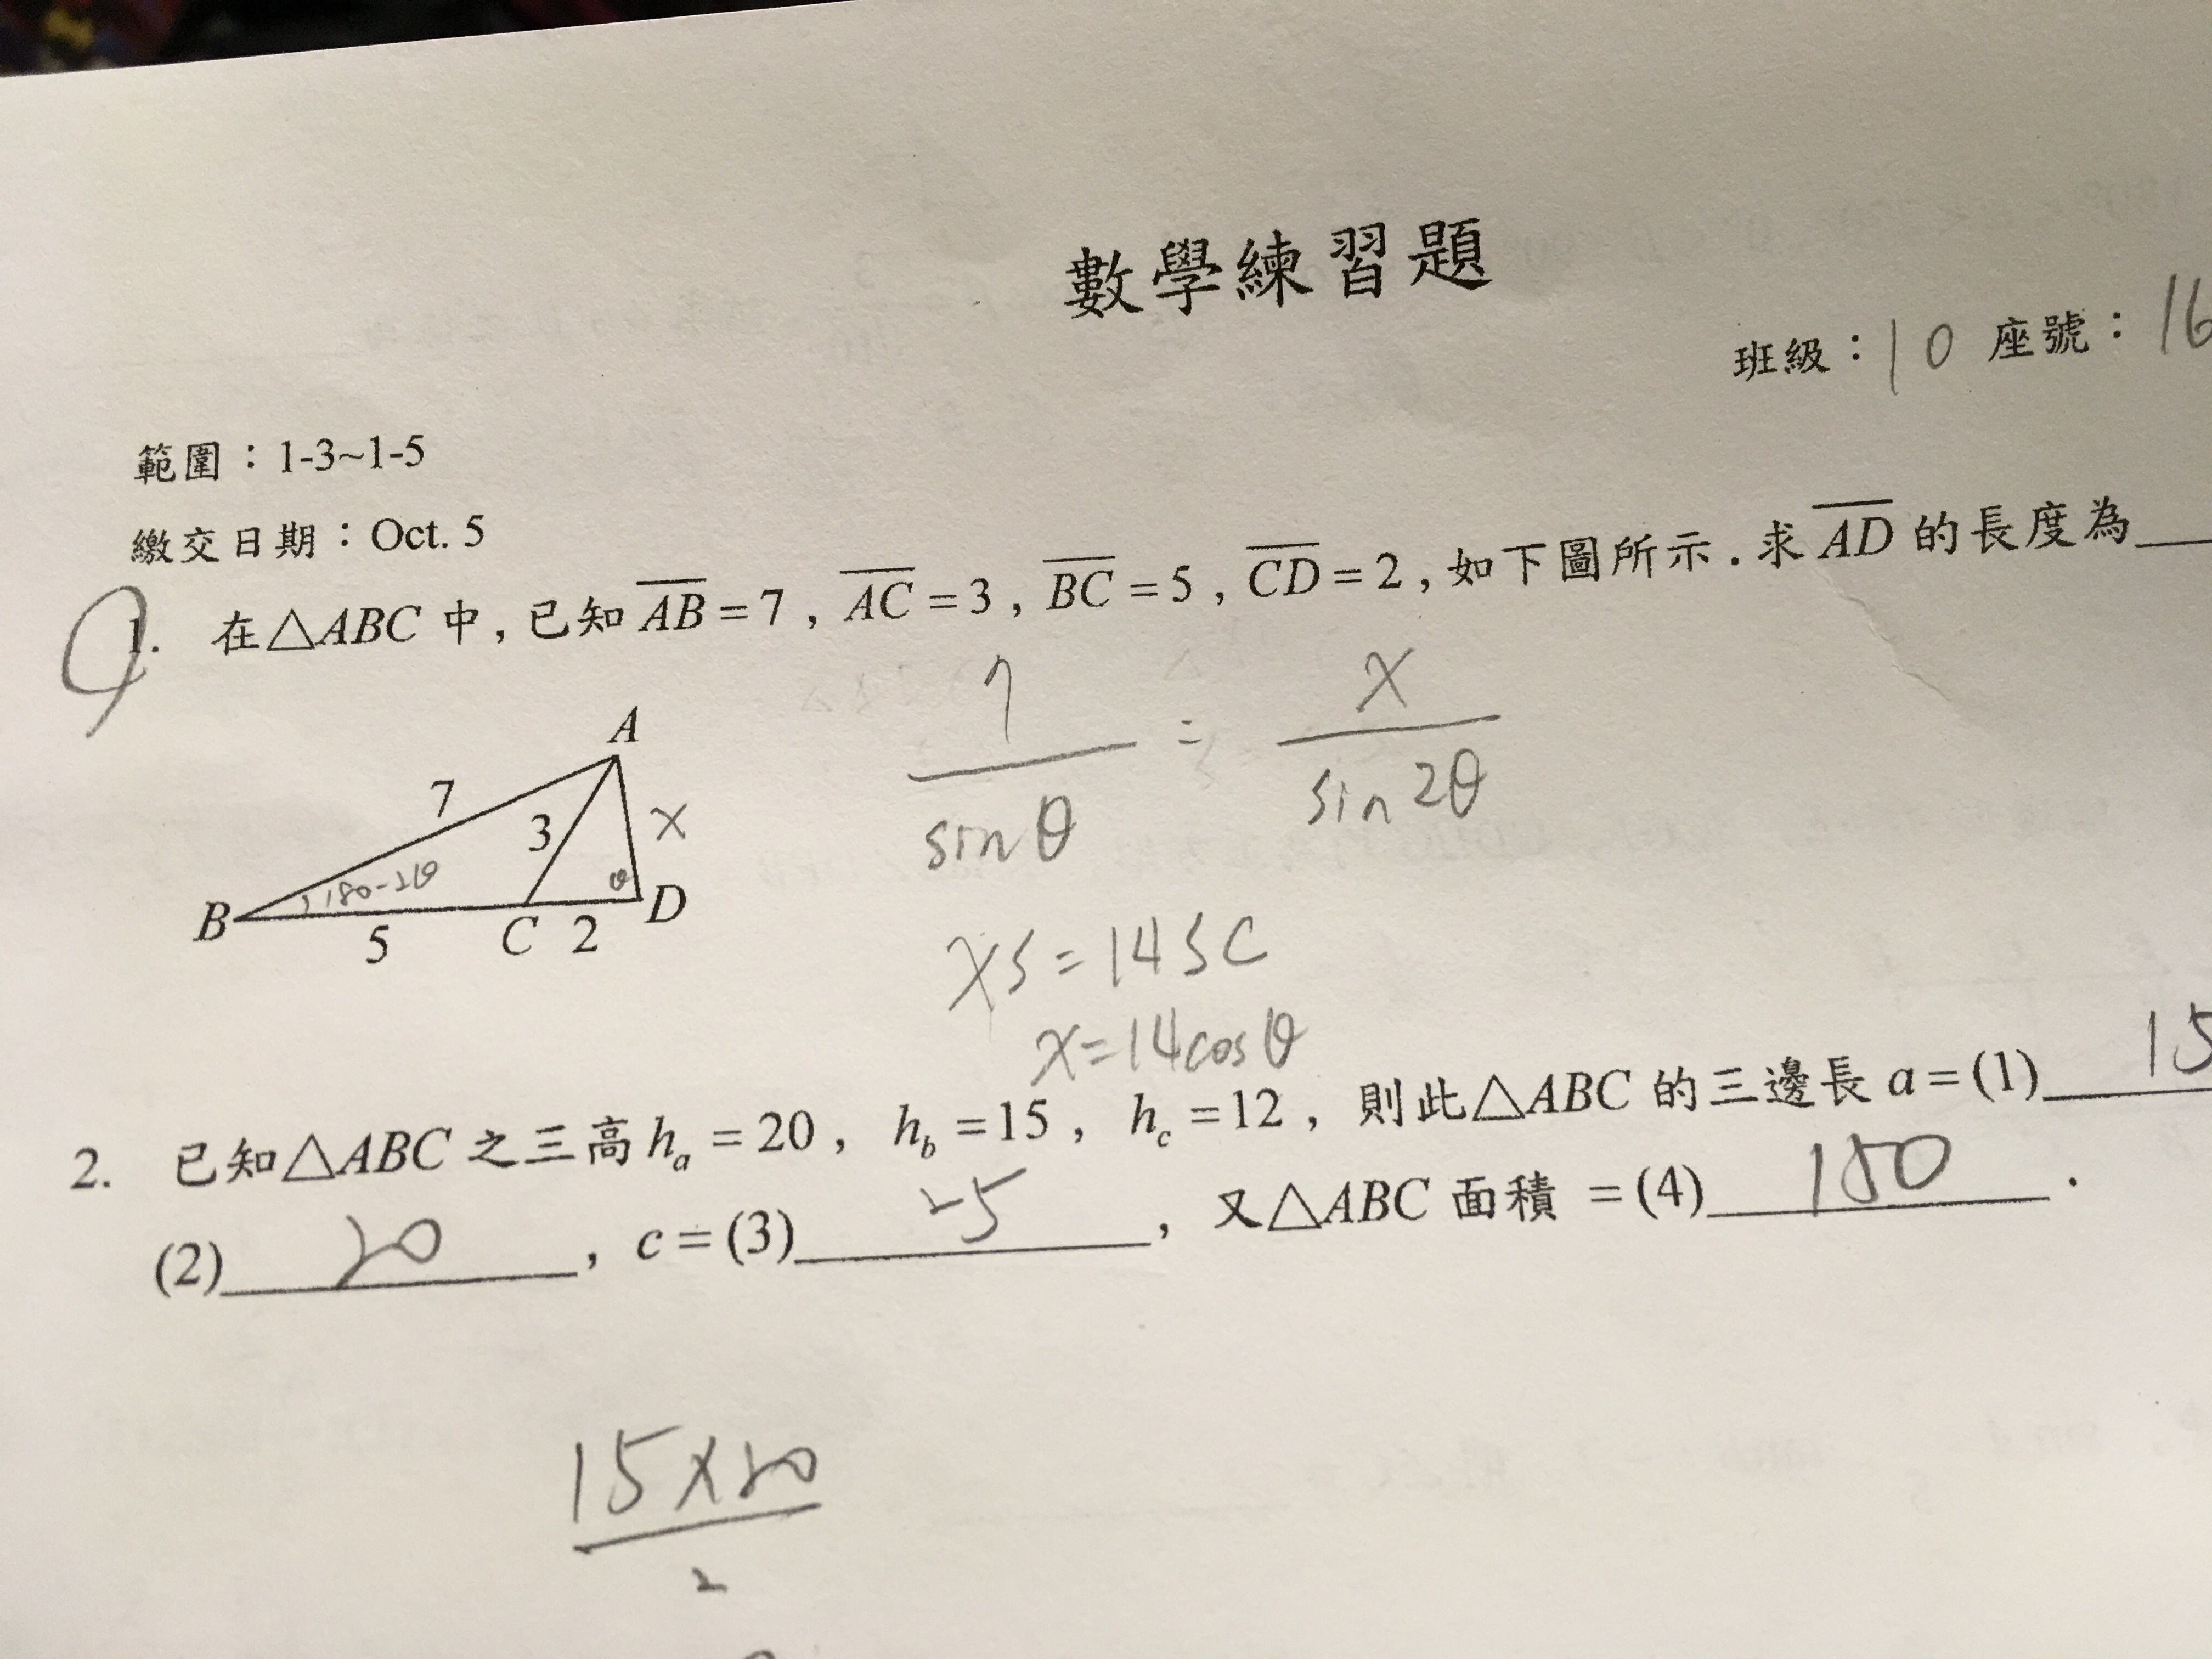 數學練習題
班級：10 座號：16
範圍：1-3~1-5
繳交日期：Oct. 5
1. 在△ABC 中，已知 \overline{AB} = 7，\overline{AC} = 3，\overline{BC} = 5，\overline{CD} = 2，如下圖所示．求 \overline{AD} 的長度為
A
7
3
x
180-2θ
θ
B
5
C
2
D
7/sinθ = x/sin2θ
xs = 14sc
x = 14cosθ
2. 已知△ABC 之三高 h_a = 20， h_b = 15， h_c = 12，則此△ABC 的三邊長 a = (1) 15
(2) 20，c = (3) 25，又△ABC 面積 = (4) 150．
15×20
2